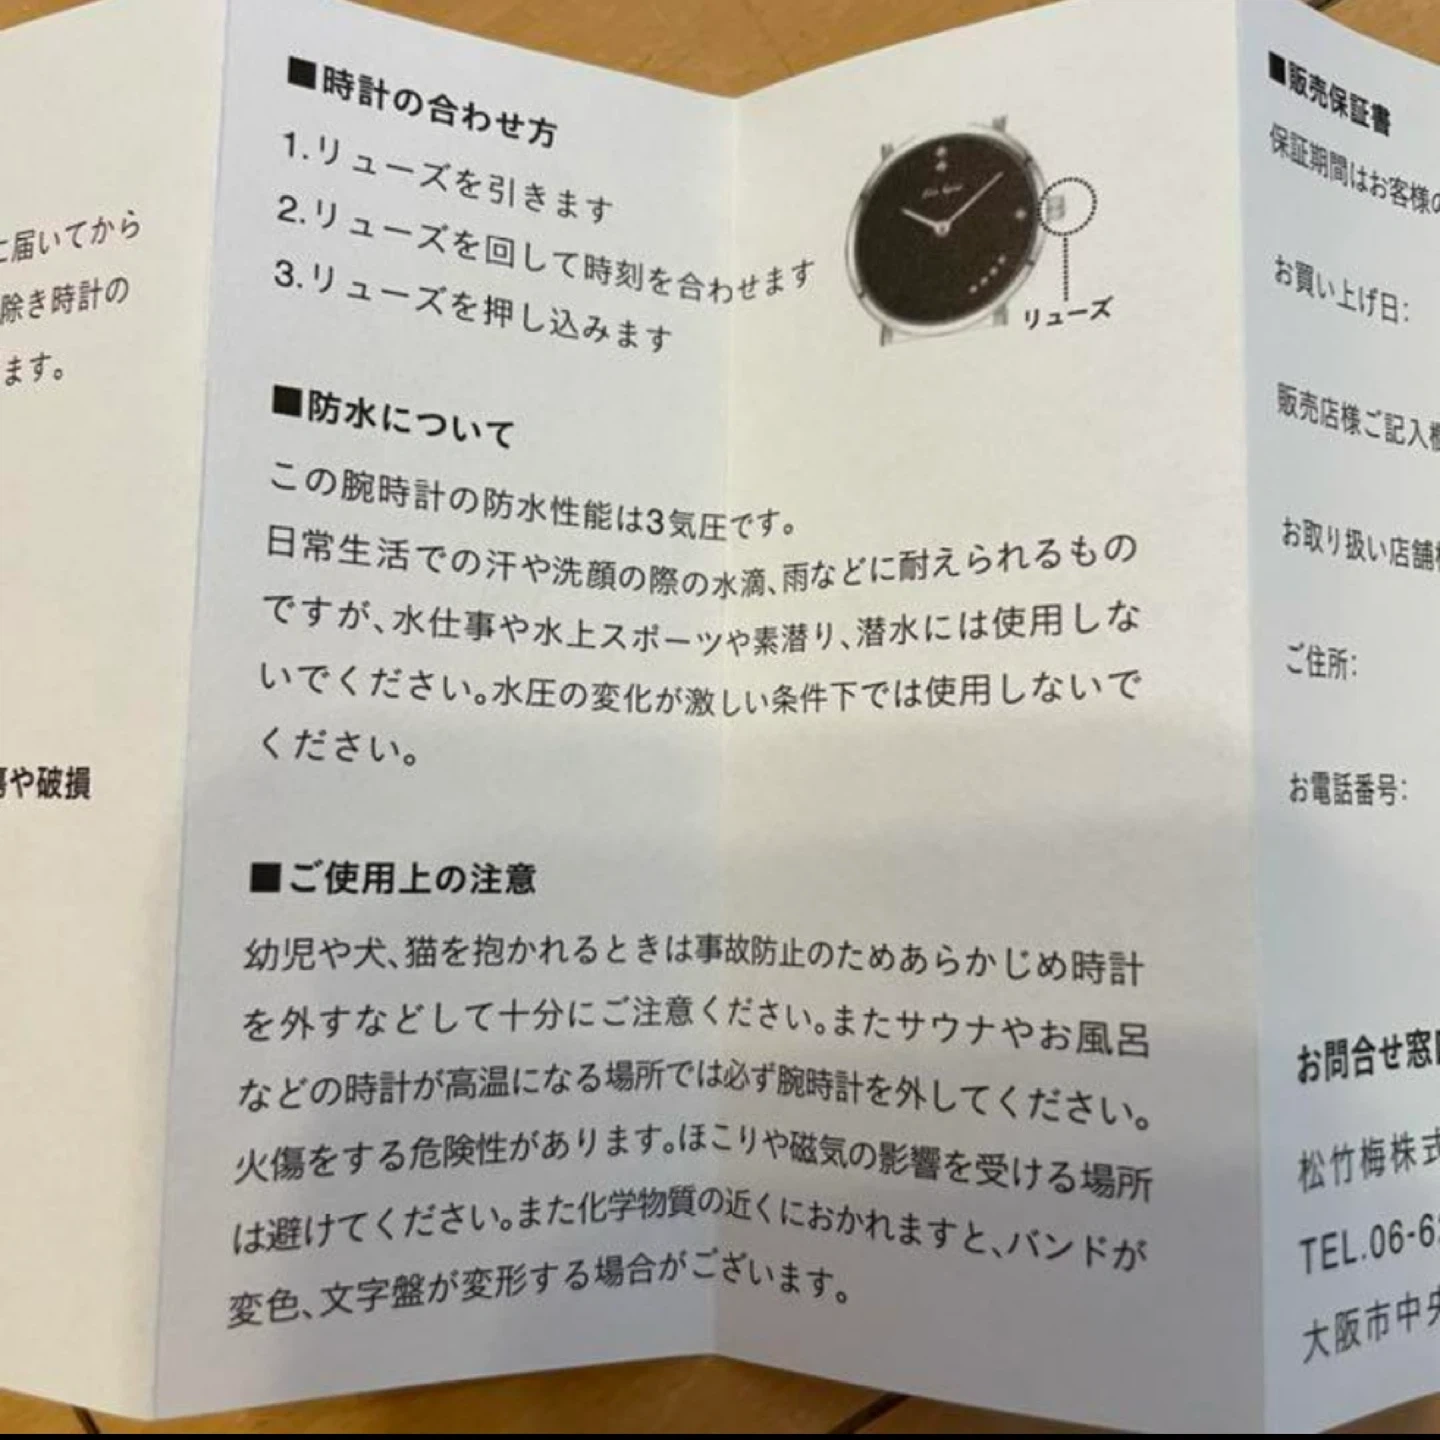 に届いてから
除き時計の
ます。
や破損
■時計の合わせ方
1.リューズを引きます
2.リューズを回して時刻を合わせます
3.リューズを押し込みます
リューズ
■防水について
この腕時計の防水性能は3気圧です。
日常生活での汗や洗顔の際の水滴、雨などに耐えられるもの
ですが、水仕事や水上スポーツや素潜り、潜水には使用しな
いでください。水圧の変化が激しい条件下では使用しないで
ください。
■ご使用上の注意
幼児や犬、猫を抱かれるときは事故防止のためあらかじめ時計
を外すなどして十分にご注意ください。またサウナやお風呂
などの時計が高温になる場所では必ず腕時計を外してください。
火傷をする危険性があります。ほこりや磁気の影響を受ける場所
は避けてください。また化学物質の近くにおかれますと、バンドが
変色、文字盤が変形する場合がございます。
■販売保証書
保証期間はお客様の
お買い上げ日:
販売店様ご記入欄
お取り扱い店舗様
ご住所:
お電話番号:
お問合せ窓口
松竹梅株式
TEL.06-6
大阪市中央